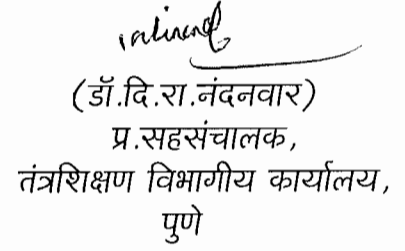 (डॉ.दि.रा.नंदनवार)
प्र.सहसंचालक,
तंत्रशिक्षण विभागीय कार्यालय,
पुणे